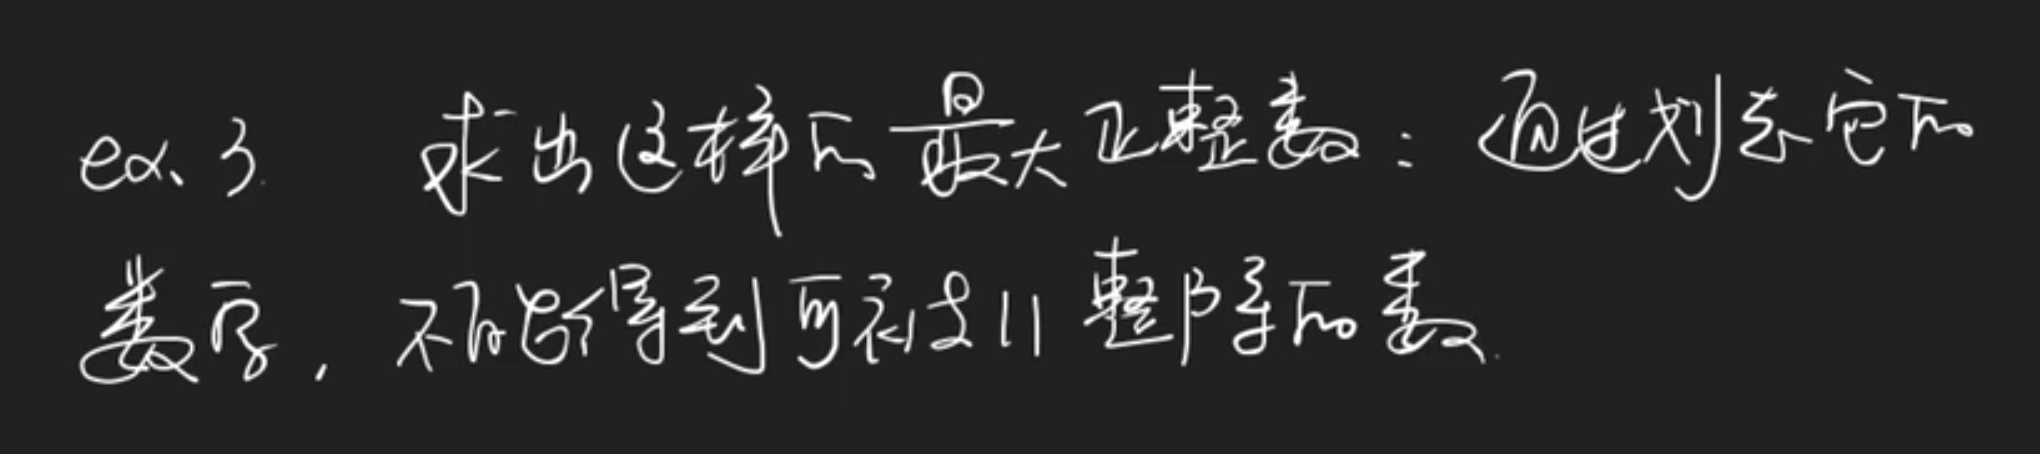 ex. 3. 求出这样的最大正整数：通过划去它的
数字，不可能得到可被11整除的数.